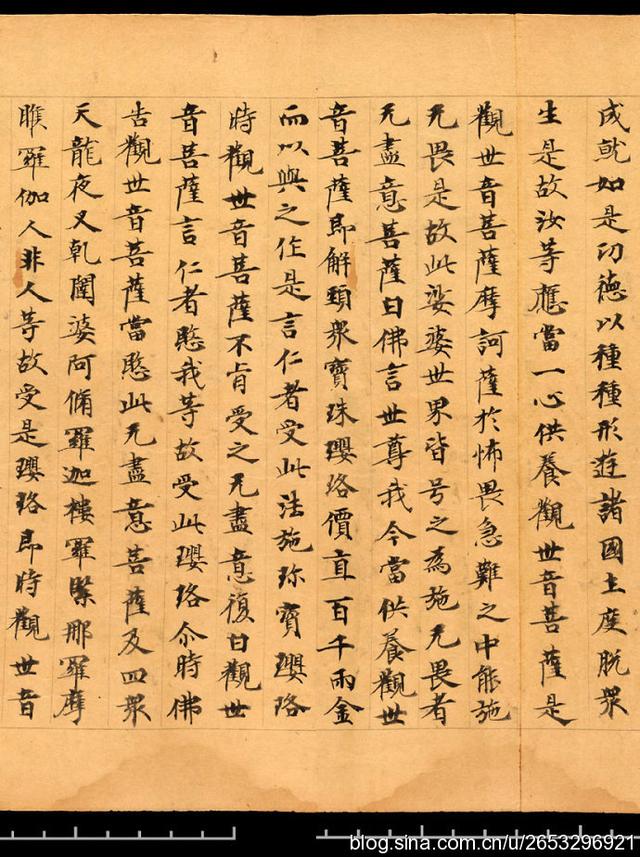 成就如是功德以種種形遊諸國土度脫眾
生是故汝等應當一心供養觀世音菩薩是
觀世音菩薩摩訶薩於怖畏急難之中能施
无畏是故此娑婆世界皆号之為施无畏者
无盡意菩薩白佛言世尊我今當供養觀世
音菩薩即解頸眾寶珠瓔珞價直百千兩金
而以與之作是言仁者受此法施珎寶瓔珞
時觀世音菩薩不肯受之无盡意復白觀世
音菩薩言仁者愍我等故受此瓔珞尒時佛
告觀世音菩薩當愍此无盡意菩薩及四眾
天龍夜叉乹闥婆阿脩羅迦樓羅緊那羅摩
睺羅伽人非人等故受是瓔珞即時觀世音
blog.sina.com.cn/u/2653296921